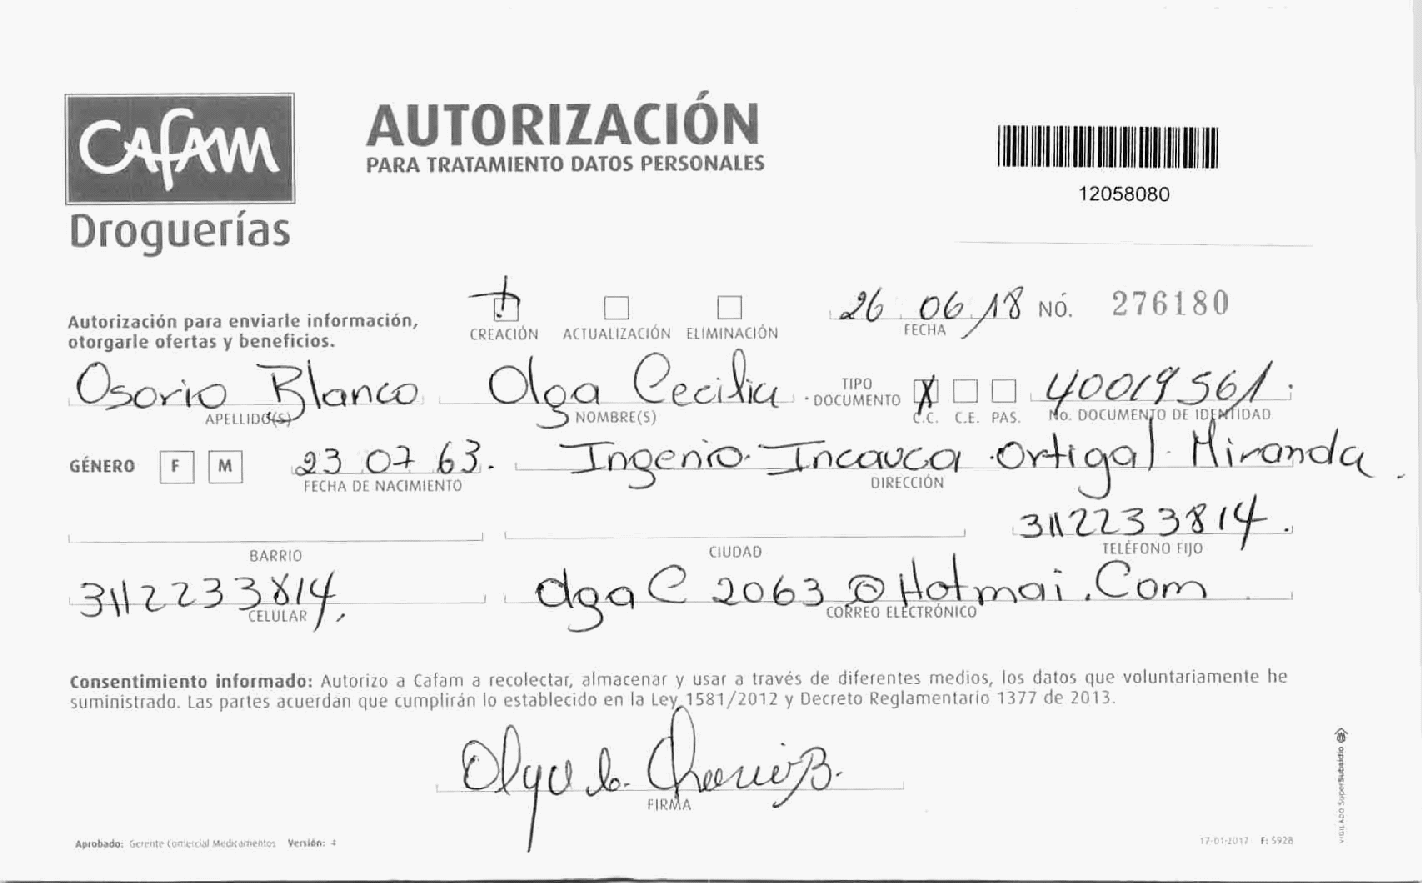 CAFAM
Droguerías
AUTORIZACIÓN
PARA TRATAMIENTO DATOS PERSONALES
12058080
Autorización para enviarle información,
otorgarle ofertas y beneficios.
CREACIÓN ACTUALIZACIÓN ELIMINACIÓN
26 06/18 NÓ. 276180
FECHA
Osorio Blanco Olga Cecilia TIPO DOCUMENTO X 40019561
APELLIDO(S) NOMBRE(S) C.C. C.E. PAS. No. DOCUMENTO DE IDENTIDAD
GÉNERO F M 23 07 63. Ingenio Incauca Ortigal Miranda
FECHA DE NACIMIENTO DIRECCIÓN
3112233814.
BARRIO CIUDAD TELÉFONO FIJO
3112233814, olgaC2063@Hotmai.Com
CELULAR CORREO ELECTRÓNICO
Consentimiento informado: Autorizo a Cafam a recolectar, almacenar y usar a través de diferentes medios, los datos que voluntariamente he
suministrado. Las partes acuerdan que cumplirán lo establecido en la Ley 1581/2012 y Decreto Reglamentario 1377 de 2013.
Olga C. Osorio B.
FIRMA
Aprobado: Gerente Comercial Medicamentos Versión: 4
17-01-2017 F: 5928
VIGILADO SuperSubsidio